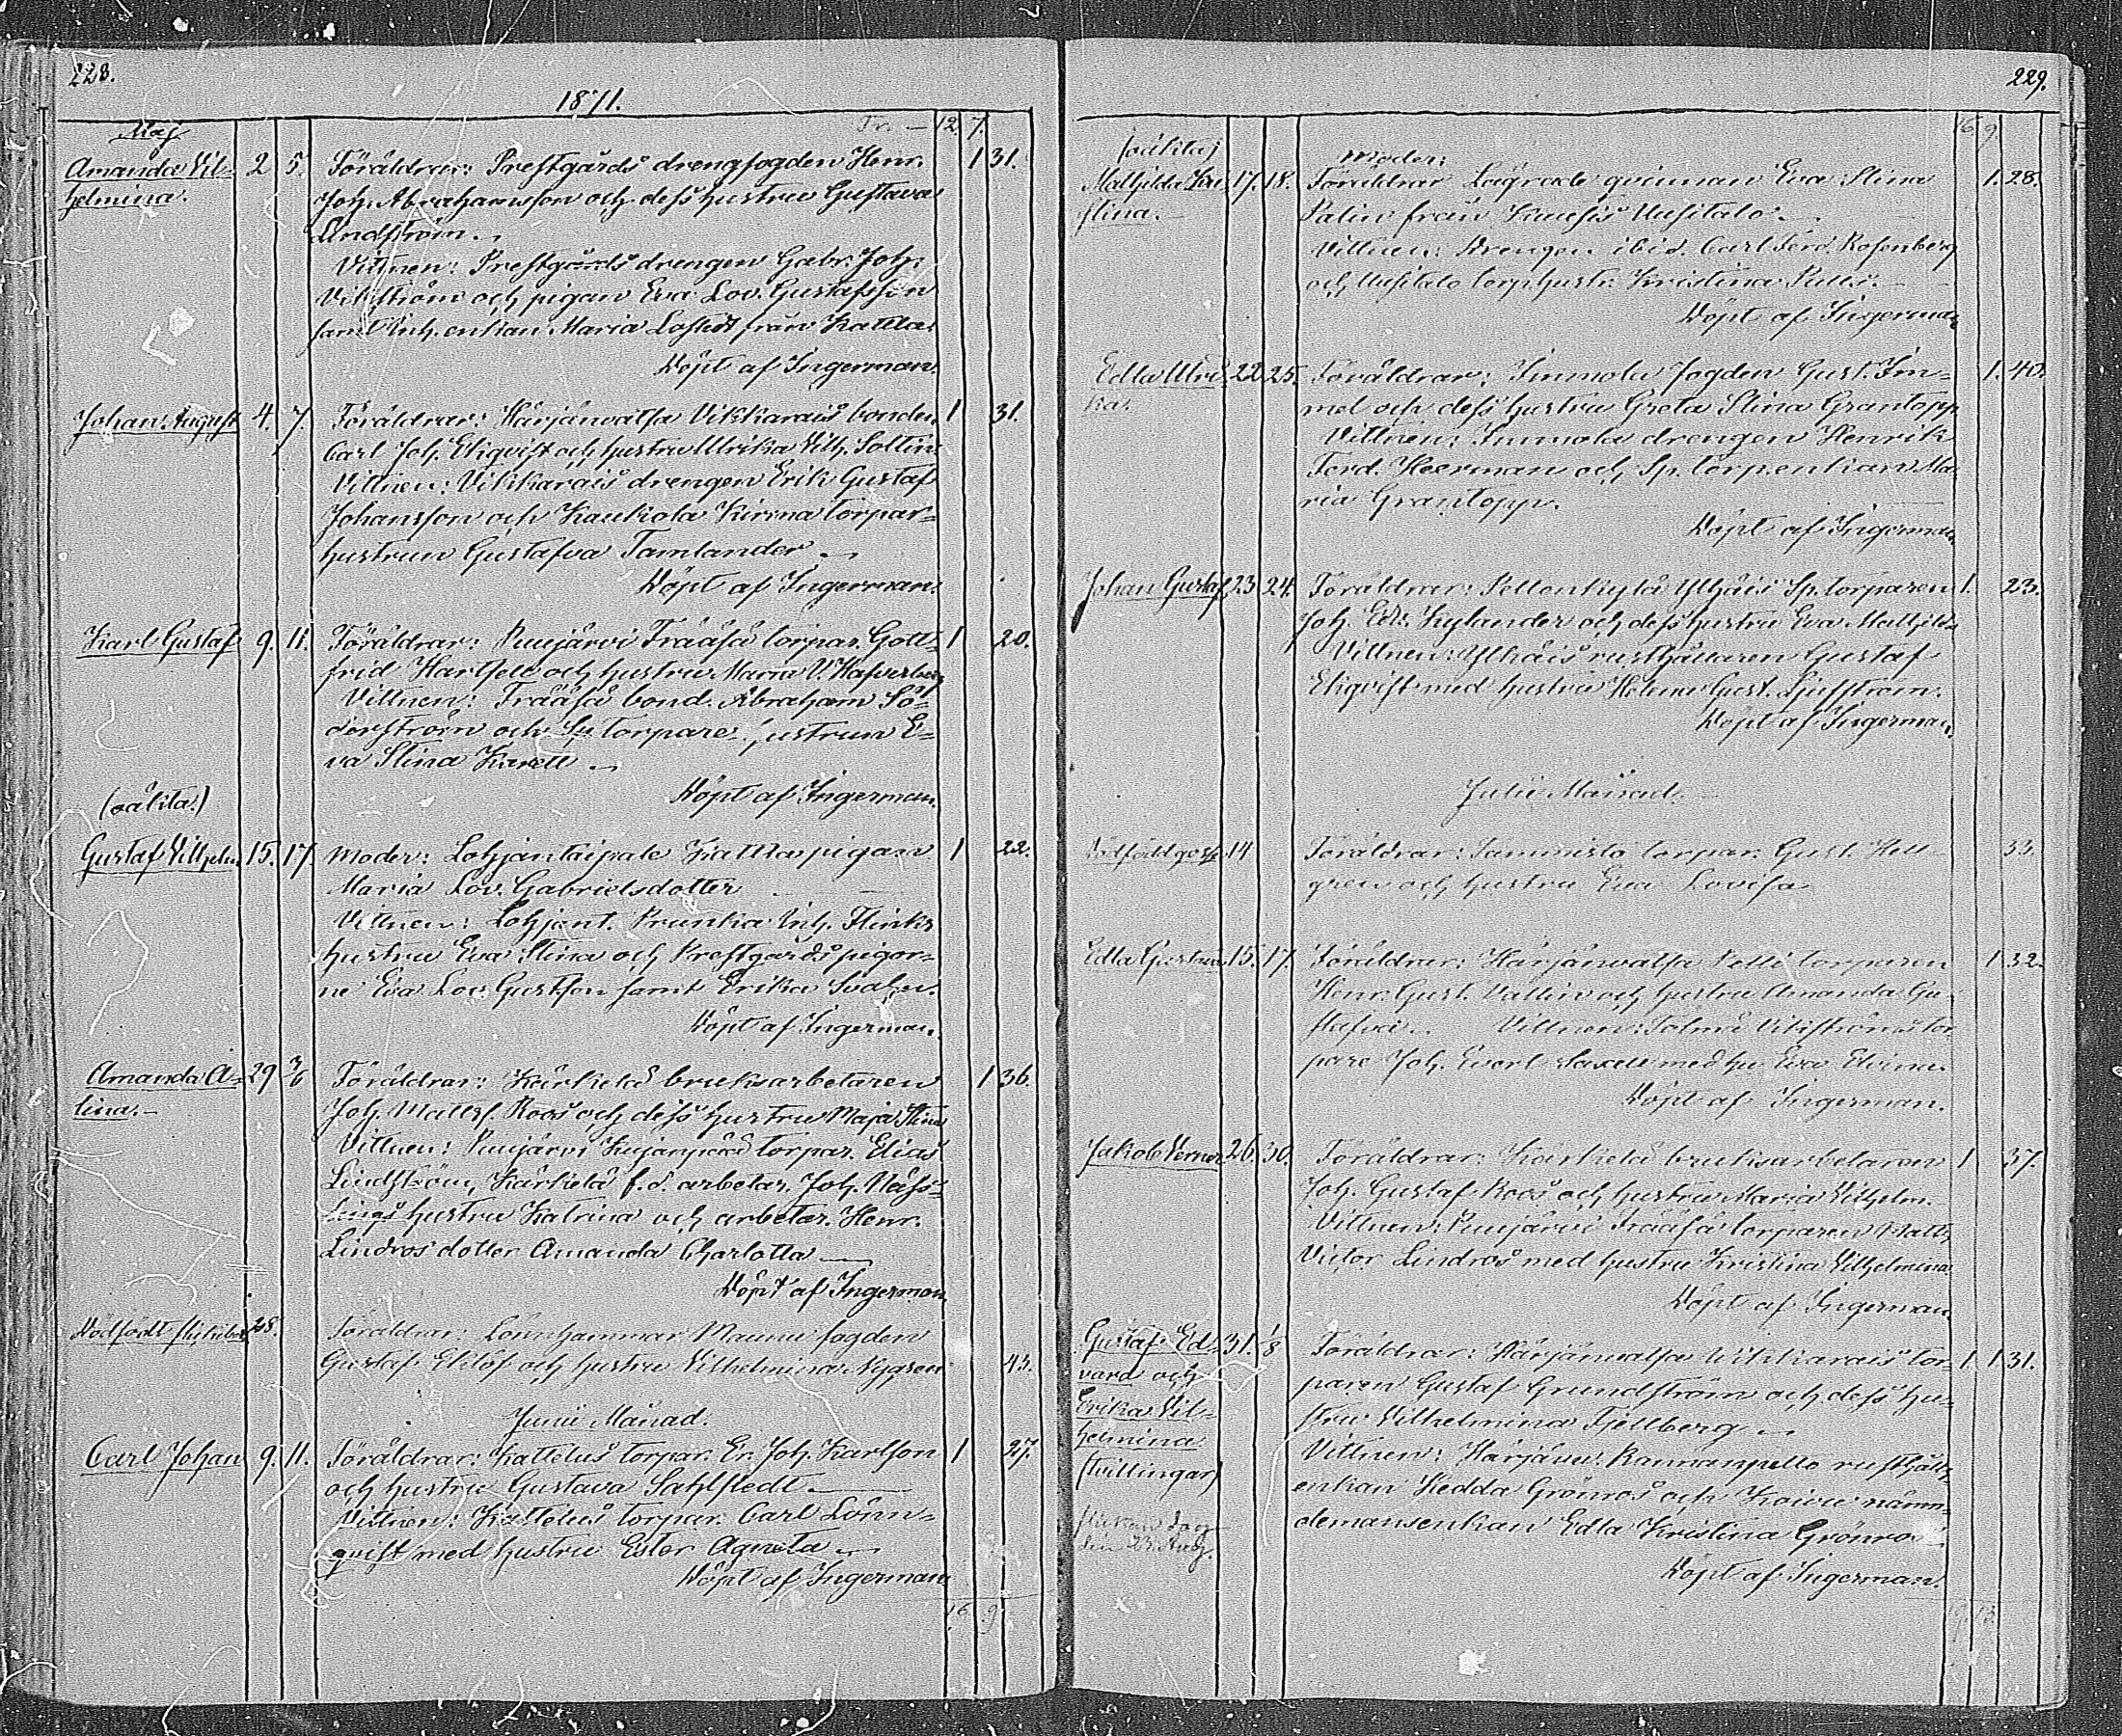 228.
1871.
Tr. — 12. 7.
Maj
Amanda Vil= 2 5. Föräldrar: Prestgårds drengfogden Henr. 1 31.
helmina. Joh. Abrahamsson och dess hustru Gustava
Lindström.
Vittnen: Prestgårds drengen Gabr. Joh.
Vikström och pigan Eva Lov. Gustafsson
samt Inh. enkan Maria Lofstedt från Kattla.
Döpt af Ingerman.
Johan August 4. 7. Föräldrar: Härjänvatsa Vikkarais bonden 1 31.
Carl Joh. Ekqvist och hustru Ulrika Vilh. Sottin.
Vittnen: Vikkarais drengen Erik Gustaf
Johansson och Kaukola Kirma torpar=
hustrun Gustafva Tamlander
Döpt af Ingerman.
Karl Gustaf 9. 11. Föräldrar: Puujärvi Trääsä torpar. Gott= 1 20.
frid Hartfelt och hustru Maria V. Hafverberg
Vittnen: Trääsä bond. Abraham Sö=
derström och Sp. torpare hustrun E=
va Stina Karell
Döpt af Ingerman.
(oälita)
Gustaf Vilhelm 15. 17. Moder: Lohjantaipale Kattla pigan 1 22.
Maria Lov. Gabrielsdotter
Vittnen: Lohjant. Prunka Inh. Flinks
hustru Eva Stina och Prestgårds pigor=
ne Eva Lov. Gustfson samt Erika Svahn.
Döpt af Ingerman.
Amanda A= 29 3/6 Föräldrar: Kärkelä bruksarbetaren 1 36.
lina. Joh. Mattsf. Roos och dess hustru Maja Stina
Vittnen: Puujärvi Kujanpää torpar. Elias
Lindström, Kärkelä f.d. arbetar. Joh. Näss=
lings hustru Katrina och arbetar. Henr.
Lindros dotter Amanda Charlotta
Döpt af Ingerman.
Dödfödt flickebarn 28. Föräldrar: Lönnhammar Maunu fogden
Gustaf Eklöf och hustru Vilhelmina Nygren 43.
Junii Månad.
Carl Johan 9. 11. Föräldrar: Kattelus torpar. Er. Joh. Karlson 1 27.
och hustru Gustava Sahlstedt
Vittnen: Kattelus torpar. Carl Lönn=
qvist med hustru Ester Agneta
Döpt af Ingerman.
16. 9.
229.
16. 9.
(oälita) Moder:
Mathilda Kri 17. 18. Föräldrar Lägrade qvinnan Eva Stina 1. 28.
stina. Palin från Uusitalo.
Vittnen: Drengen ibid. Carl Ferd. Rosenberg
och Uusitalo torphustr. Kristina
Döpt af Ingerman
Edla Ulri 22 25. Föräldrar: Immola fogden Gust. Im= 1. 40.
ka. mel och dess hustru Greta Stina Grantopp
Vittnen: Immola drengen Henrik
Ferd. Heerman och Sp. torpenkan Ma
ria Grantopp.
Döpt af Ingerman
Johan Gustaf 23 24. Föräldrar: Pellonkylä Ylhäis Sp. torparen 1. 23.
Joh. Edv. Kylander och dess hustru Eva Mathilda
Vittnen: Ylhäis rusthållaren Gustaf
Ekqvist med hustru Helena Gust.
Döpt af Ingerman.
Julii Månad.
Dödfödd gosse 14 Föräldrar: Sammisto torpar. Gust. Hell 33.
gren och hustru Eva Lovisa
Edla Gustava 15. 17. Föräldrar: Härjänvatsa Pelli torparen 1 32.
Henr. Gust. Vallin och hustru Amanda Gu
stafva. Vittnen: Vikströms tor
pare Joh. Evert Saxell med hu Eva Elvina.
Döpt af Ingerman.
Jakob Verner 26. 30. Föräldrar: Kärkelä bruksarbetaren 1 37.
Joh. Gustaf Roos och hustru Maria Vilhelm.
Vittnen: Puujärvi Trääsä torparen Matts
Victor Lindros med hustru Kristina Vilhelmina.
Döpt af Ingerman.
Gustaf Ed= 31. 1/8 Föräldrar: Härjänvatsa Vikkarais tor= 1. 1 31.
vard och paren Gustaf Grundström och dess hu=
Erika Vil= stru Vilhelmina Fjellberg
helmina Vittnen: Härjänv. Rannanpelto rusthåll
(tvillingar) enkan Hedda Grönros och Koivu nämn
demansenkan Edla Kristina Grönros
flickan dog
den 23 Aug.
Döpt af Ingerman.
19. 13.